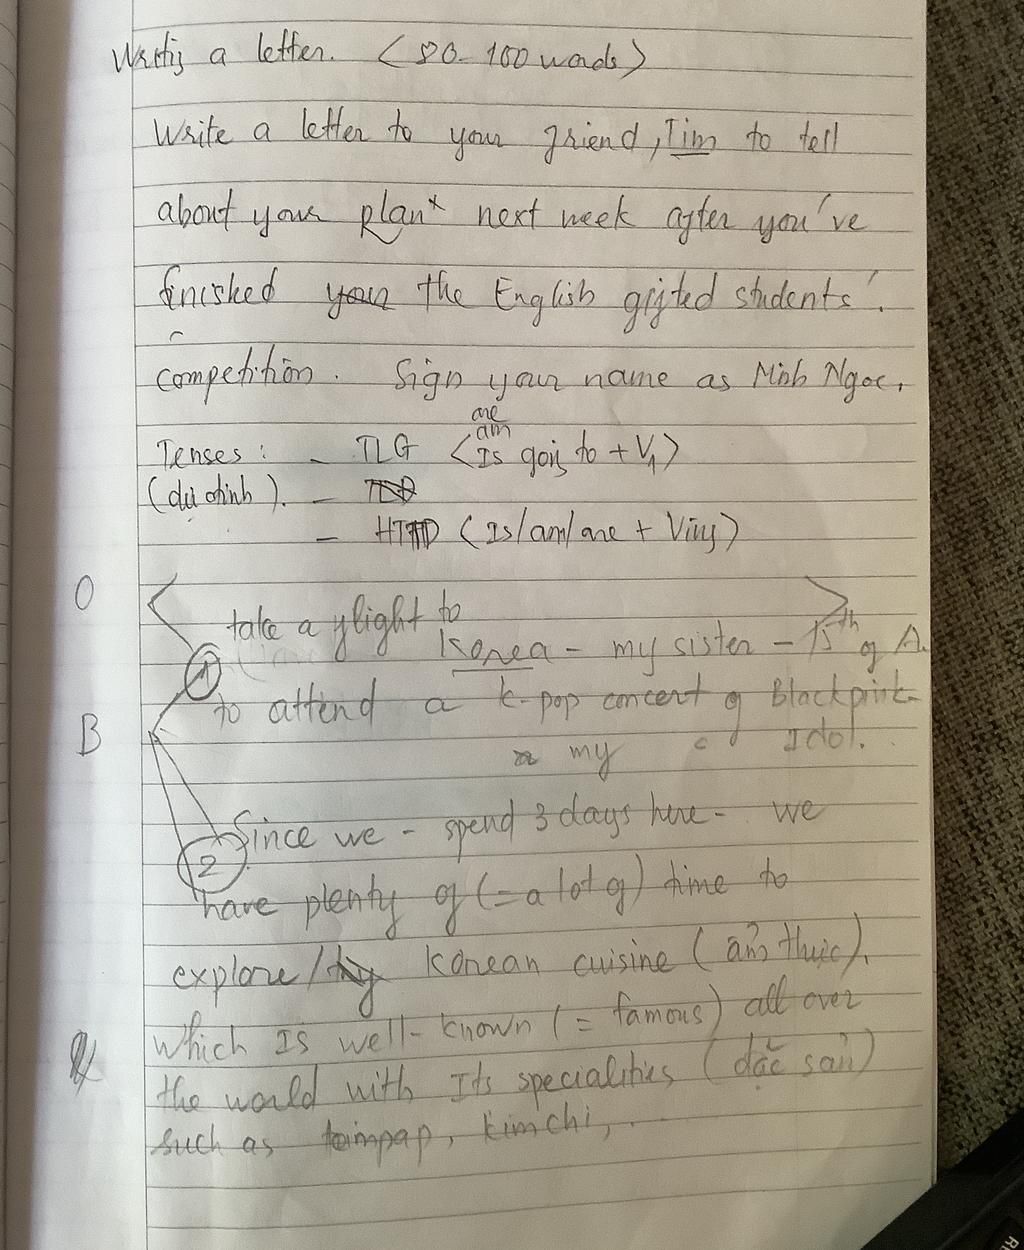 Writing a letter. (80-100 words)
Write a letter to your friend, Tim to tell
about your plan next week after you've
finished your the English gifted students'
competition. Sign your name as Minh Ngoc.
are
am
Tenses: - TLG (Is going to + V1)
(dự định). - TLD
- HTTD (Is/am/are + Ving)
O
take a flight to
Korea - my sister - 15th of A.
1
to attend a k-pop concert of Blackpink
B
my Idol.
Since we - spend 3 days here - we
2
have plenty of (= a lot of) time to
explore/try Korean cuisine (ẩm thực),
which Is well-known (= famous) all over
the world with Its specialities (đặc sản)
such as kimpap, kimchi, .